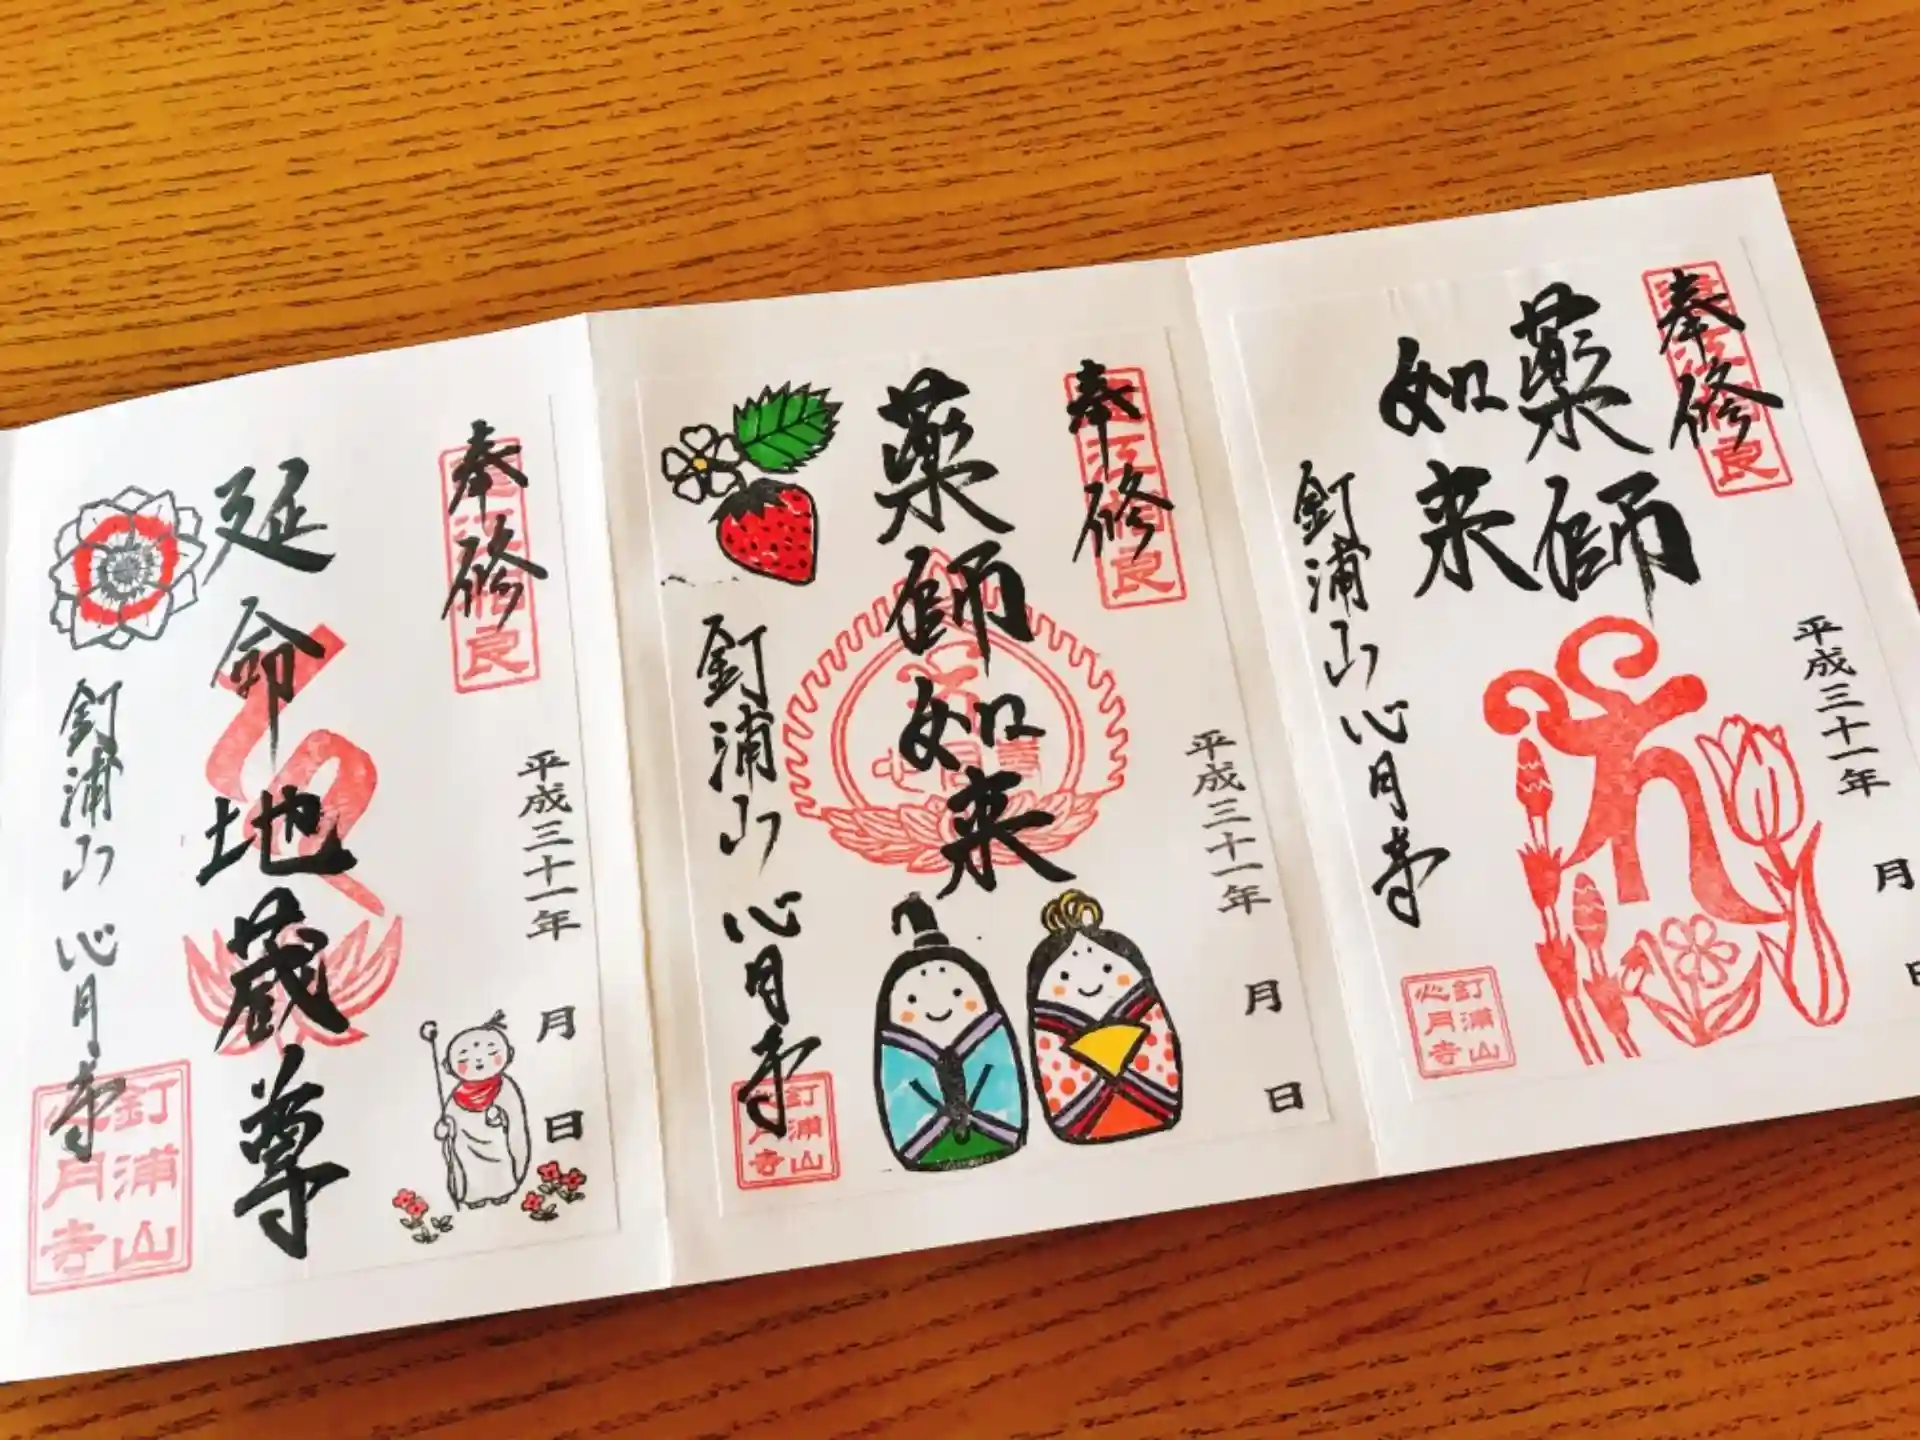 奉修
薬師
如来
釘浦山心月寺
平成三十一年
月
日
釘浦山
心月寺
奉修
薬師如来
釘浦山心月寺
平成三十一年
月
日
釘浦山
心月寺
奉修
延命地蔵尊
釘浦山心月寺
平成三十一年
月
日
釘浦山
心月寺